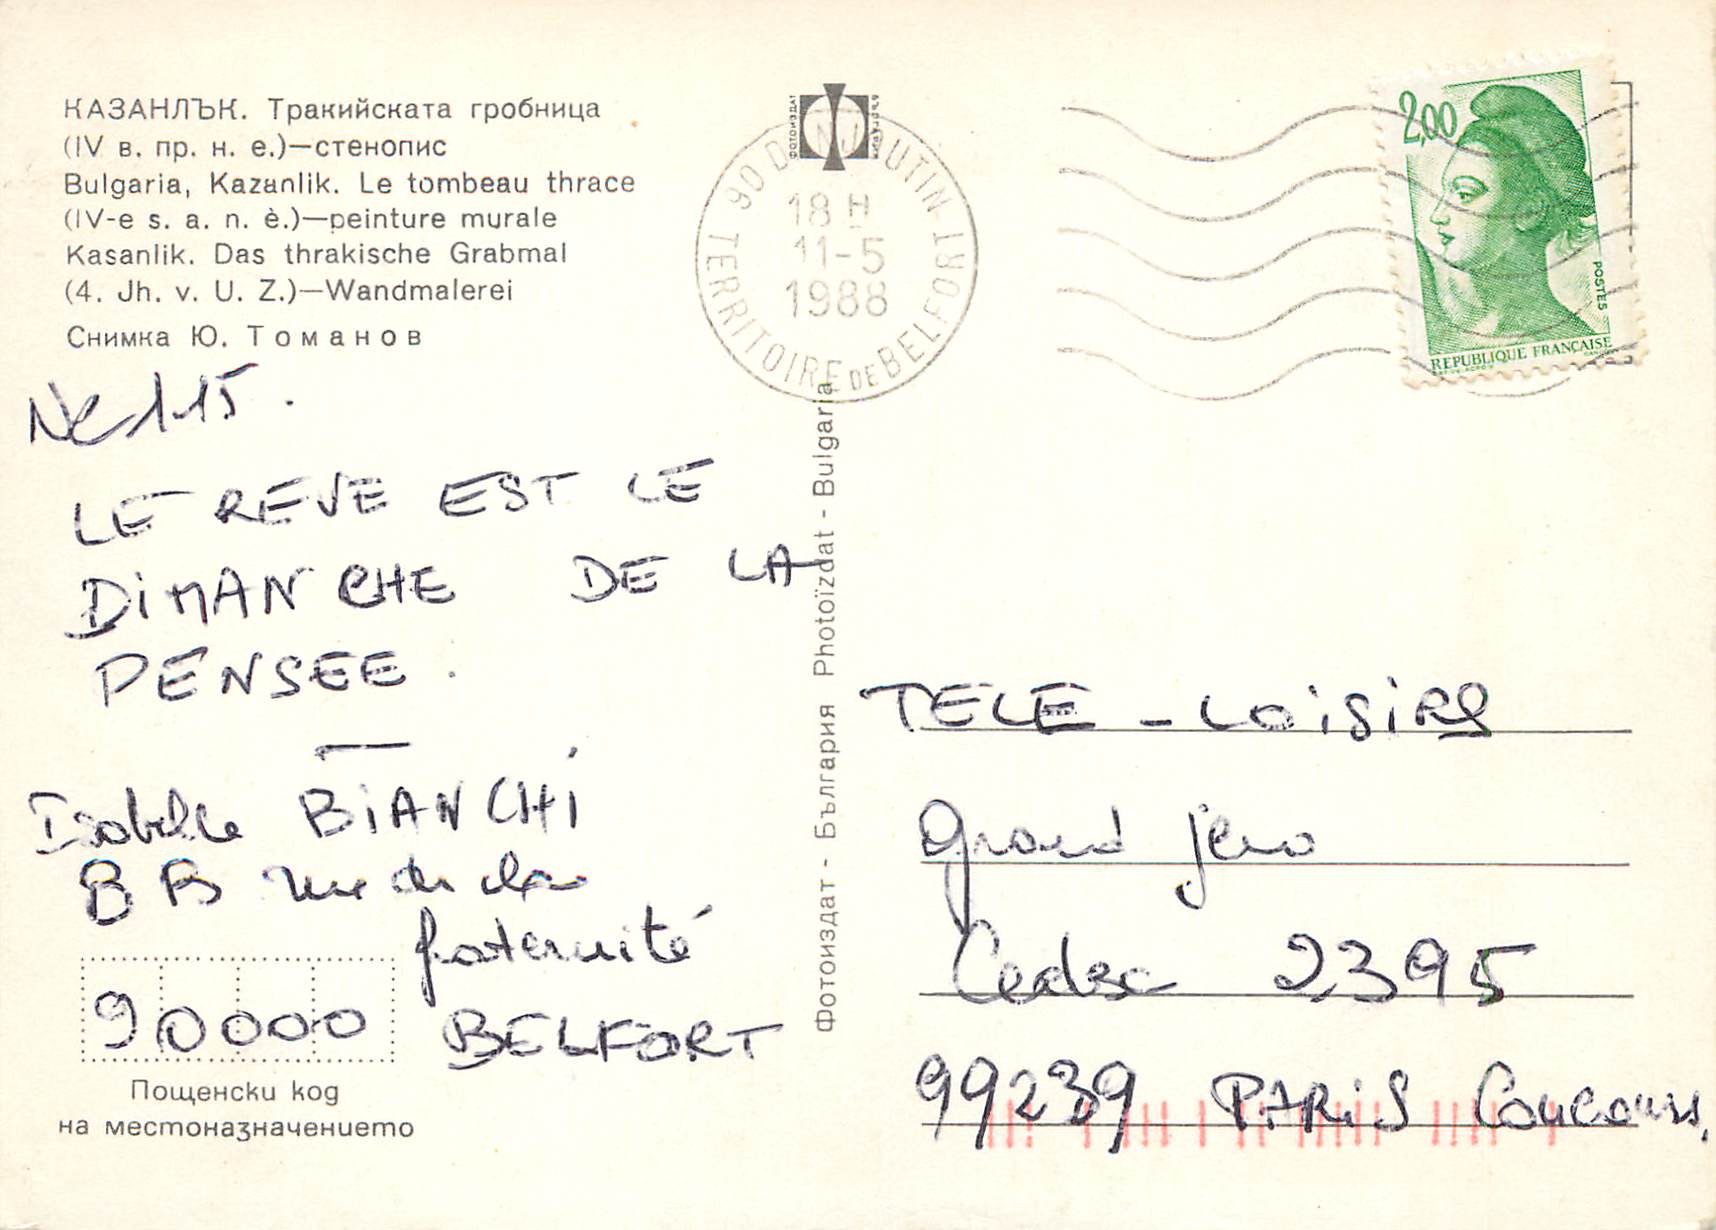 КАЗАНЛЪК. Тракийската гробница
(IV в. пр. н. е.)—стенопис
Bulgaria, Kazanlik. Le tombeau thrace
(IV-e s. a. n. è.)—peinture murale
Kasanlik. Das thrakische Grabmal
(4. Jh. v. U. Z.)—Wandmalerei
Снимка Ю. Томанов
115.
LE REVE EST LE
DiMANCHE DE LA
PENSEE.
Isabelle BiANCHi
8 B rue de la
fraternité
90000 BELFORT
Пощенски код
на местоназначението
ФОТОИЗДАТ БЪЛГАРИЯ
90 DANJOUTIN
18 H
11-5
1988
TERRITOIRE DE BELFORT
Фотоиздат - България Photoïzdat - Bulgaria
2,00
POSTES
REPUBLIQUE FRANÇAISE
TELE - LOiSiRS
Grand jeu
Cedex 2395
99239 PARiS Concours